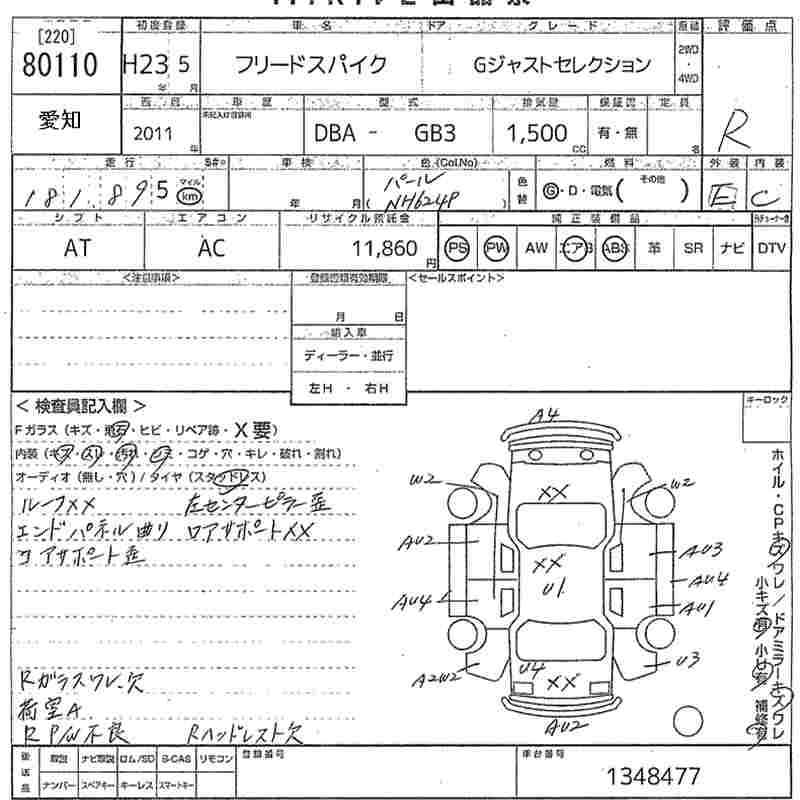 [220]
80110
初度登録
車名
ドア
グレード
車歴
評価点
H23 5
年 月
フリードスパイク
Gジャストセレクション
2WD
・
4WD
愛知
西暦
2011
年
車歴
型式
DBA - GB3
排気量
1,500
CC
保証書
有・無
定員
名
R
走行
181,895
マイル
km
車検
年 月
色(Col.No)
パール
NH624P
色替
燃料
G・D・電気( その他 )
外装
E
内装
C
シフト
AT
エアコン
AC
リサイクル預託金
11,860
円
純正装備品
PS PW AW エアB ABS 革 SR ナビ DTV
<注意事項>
登録書類有効期限
月 日
輸入車
ディーラー・並行
左H ・ 右H
<セールスポイント>
< 検査員記入欄 >
Fガラス(キズ・飛石・ヒビ・リペア跡・X要)
内装(キズ・スレ・汚れ・シミ・コゲ・穴・キレ・破れ・割れ)
オーディオ(無し・穴)/タイヤ(スタッドレス)
ルーフXX 左センターピラー歪
エンドパネル曲り ロアサポートXX
コアサポート歪
Rガラスワレ、欠
荷室A
R P/W不良 Rヘッドレスト欠
キーロック
A4
W2
W2
XX
AU2
AU3
XX
U1
AU4
AU4
AU1
A2W2
U4
XX
U3
AU2
ホイル・CPキズワレ/ドアミラーキズワレ
小キズ有 小U有 補修有
後送品
取説 ナビ取説 ロム/SD B-CAS リモコン
ナンバー スペアキー キーレス スマートキー
登録番号
車台番号
1348477